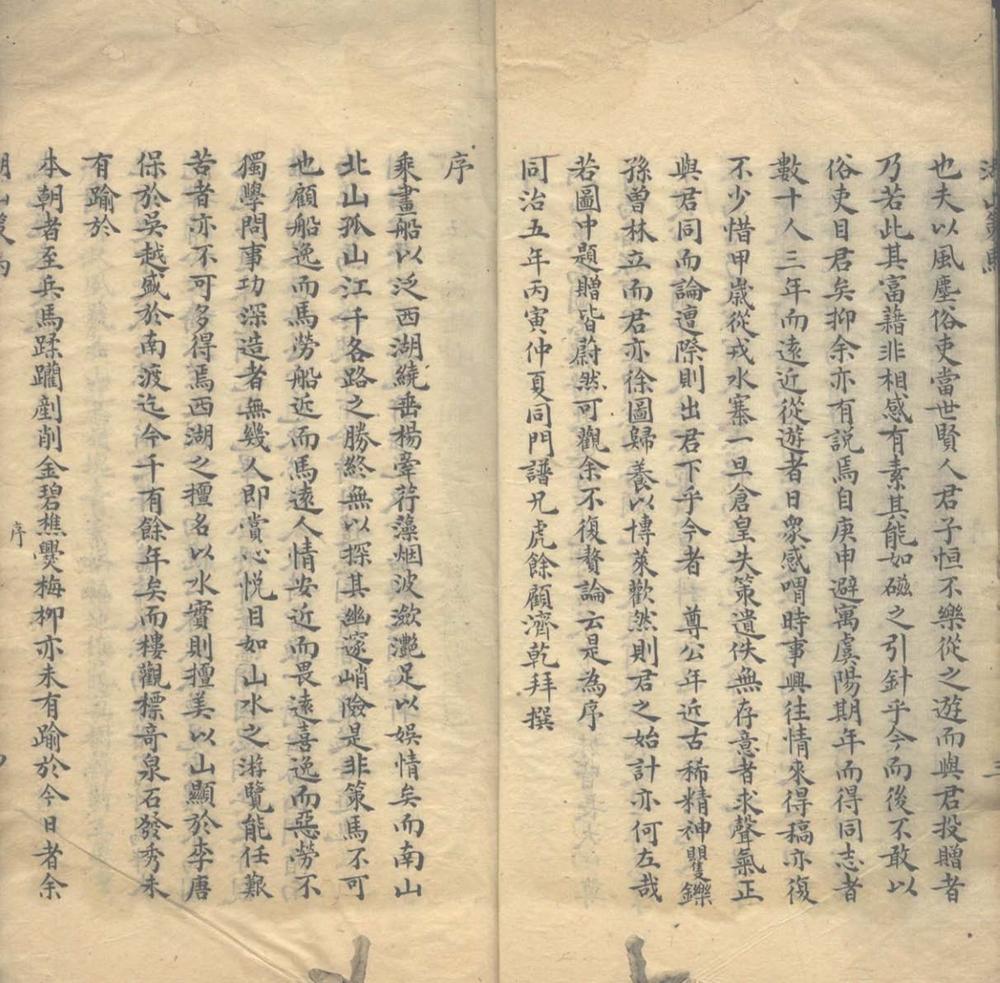 也夫以風塵俗吏當世賢人君子恒不樂從之遊而與君投贈者
乃若此其富藉非相感有素其能如磁之引針乎今而後不敢以
俗吏目君矣抑余亦有說焉自庚申避寓虞陽期年而得同志者
數十人三年而遠近從遊者日衆感喟時事興往情來得稿亦復
不少惜甲歲從戎水寨一旦倉皇失策遺佚無存意者求聲氣正
與君同而論遭際則出君下乎今者 尊公年近古稀精神矍鑠
孫曾林立而君亦徐圖歸養以博萊歡然則君之始計亦何左哉
若圖中題贈皆蔚然可觀余不復贅論云是為序
同治五年丙寅仲夏同門譜兄虎餘顧濟乾拜撰
序
乘畫船以泛西湖繞垂楊牽荇藻烟波瀲灔足以娛情矣而南山
北山孤山江干各路之勝終無以探其幽邃峭險是非策馬不可
也顧船逸而馬勞船近而馬遠人情安近而畏遠喜逸而惡勞不
獨學問事功深造者無幾人即賞心悅目如山水之游覽能任艱
苦者亦不可多得焉西湖之擅名以水實則擅美以山顯於李唐
保於吳越盛於南渡迄今千有餘年矣而樓觀標奇泉石發秀未
有踰於
本朝者至兵馬蹂躪剷削金碧樵爨梅柳亦未有踰於今日者余
序